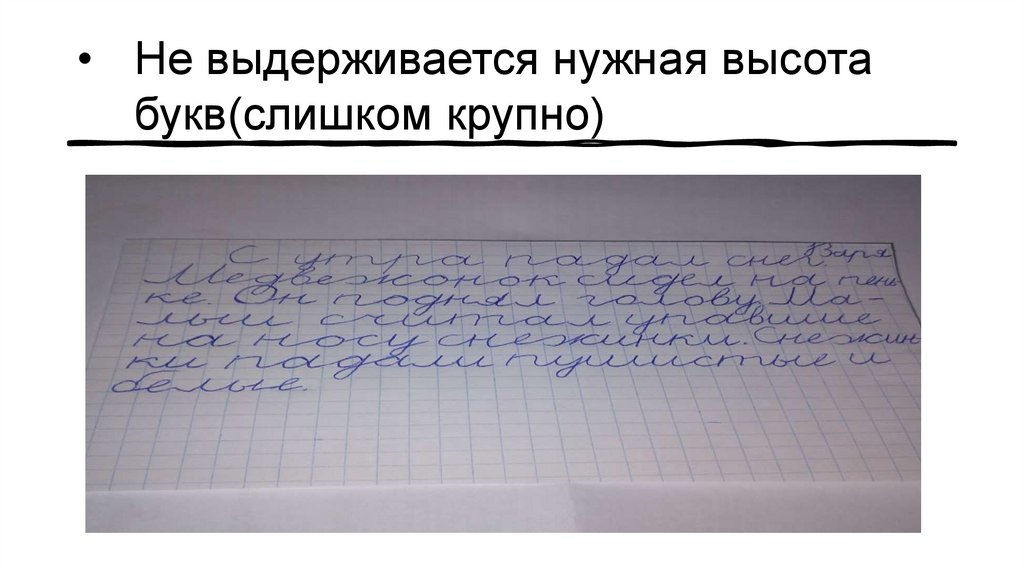 • Не выдерживается нужная высота
букв(слишком крупно)
Варя
С утра падал снег.
Медвежонок сидел на пень-
ке. Он поднял голову. Ма-
лыш считал упавшие
на носу снежинки. Снежин-
ки падали пушистые и
белые.